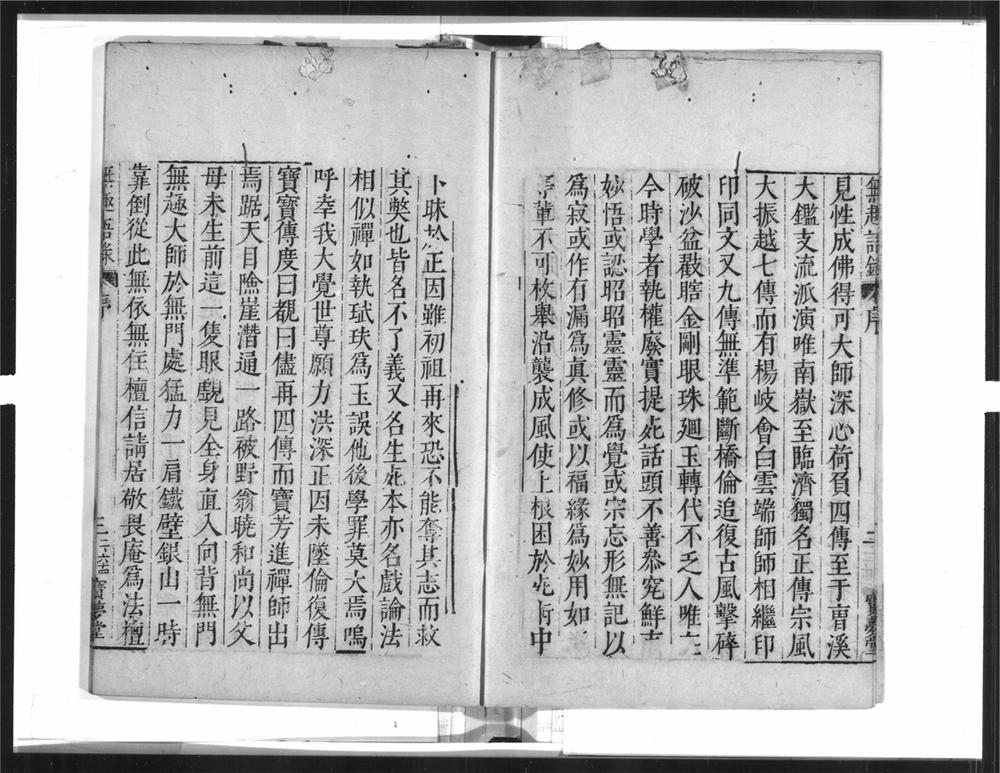 無趣語錄 序
見性成佛得可大師深心荷負四傳至于曹溪
大鑑支流派演唯南嶽至臨濟獨名正傳宗風
大振越七傳而有楊岐會白雲端師師相繼印
印同文又九傳無準範斷橋倫追復古風擊碎
破沙盆戳瞎金剛眼珠廻玉轉代不乏人唯
今時學者執權廢實提死話頭不善叅究鮮
妙悟或認昭昭靈靈而爲覺或宗忘形無記以
爲寂或作有漏爲眞修或以福緣爲妙用如
等輩不可枚舉沿襲成風使上根困於死術中
卜昧於正因雖初祖再來恐不能奪其志而救
其獘也皆名不了義又名生死本亦名戲論法
相似禪如執珷玞爲玉誤他後學罪莫大焉嗚
呼幸我大覺世尊願力洪深正因未墜倫復傳
寶寶傳度曰覩曰儘再四傳而寶芳進禪師出
焉踞天目險崖潛通一路被野翁曉和尚以父
母未生前這一隻眼覷見全身直入向背無門
無趣大師於無門處猛力一肩鐵壁銀山一時
靠倒從此無依無住檀信請居敬畏庵爲法檀
無趣語錄 序 三 寶夢堂